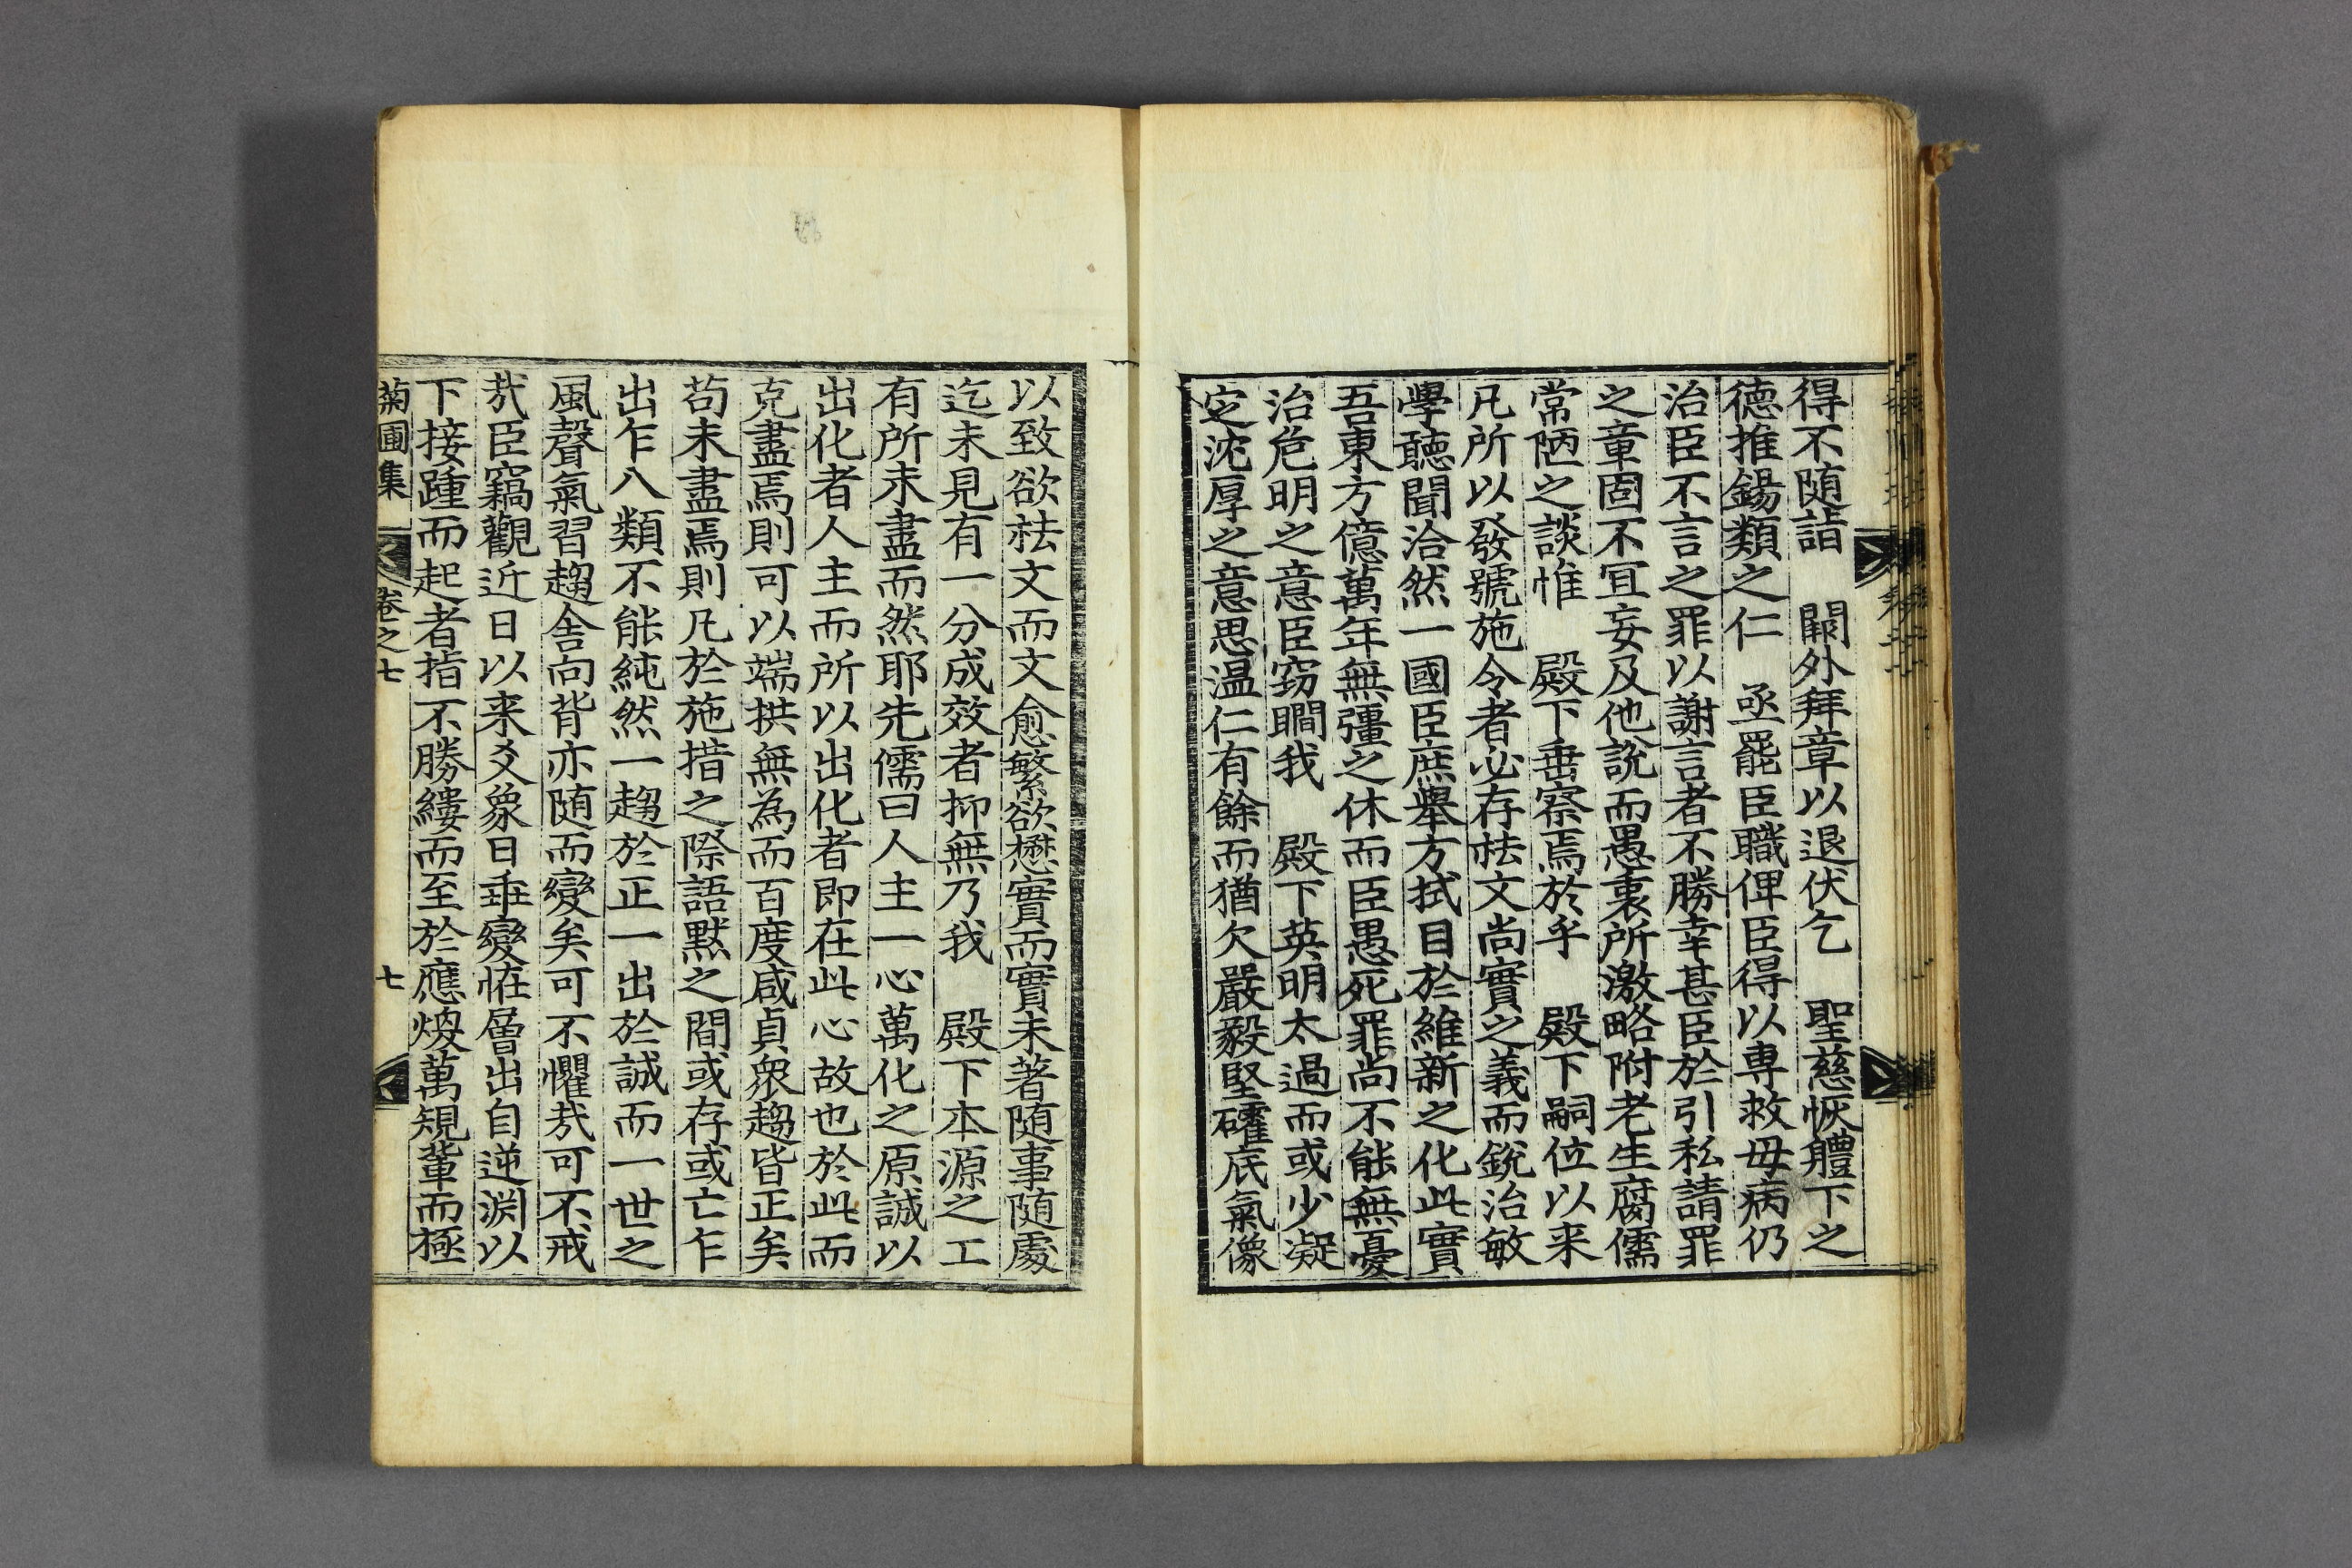 得不随詣　闕外拜章以退伏乞　聖慈恢軆下之
德推錫類之仁　亟罷臣職俾臣得以專救母病仍
治臣不言之罪以謝言者不勝幸甚臣於引私請罪
之章固不冝妄及他說而愚衷所激略附老生腐儒
常陋之談惟　殿下垂察焉於乎　殿下嗣位以来
凡所以發號施令者必存袪文尚實之義而銳治敏
學聽聞洽然一國臣庶擧方拭目於維新之化此實
吾東方億萬年無彊之休而臣愚死罪尚不能無憂
治危明之意臣窃瞷我　殿下英明太過而或少凝
定沈厚之意思温仁有餘而猶欠嚴毅堅礭底氣像
以致欲袪文而文愈繁欲懋實而實未著随事随處
迄未見有一分成效者抑無乃我　殿下本源之工
有所未盡而然耶先儒曰人主一心萬化之原誠以
出化者人主而所以出化者即在此心故也於此而
克盡焉則可以端拱無為而百度咸貞衆趨皆正矣
苟未盡焉則凡於施措之際語默之間或存或亡乍
出乍入類不能純然一趨於正一出於誠而一世之
風聲氣習趨舍向背亦随而變矣可不懼㢤可不戒
㢤臣竊觀近日以来爻象日乖變恠層出自逆淵以
下接踵而起者指不勝縷而至於應煥萬䂓輩而極
菊圃集　卷之七　七